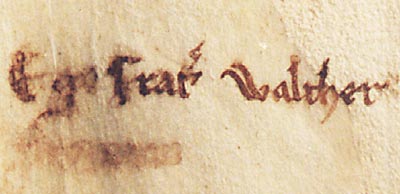 Ego frat᾿ walther